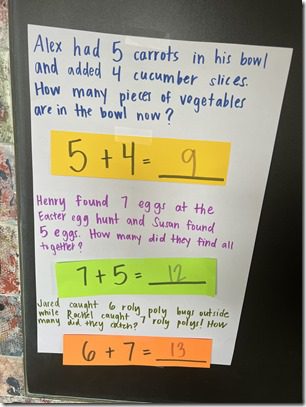 Alex had 5 carrots in his bowl
and added 4 cucumber slices.
How many pieces of vegetables
are in the bowl now?
5 + 4 = 9
Henry found 7 eggs at the
Easter egg hunt and Susan found
5 eggs. How many did they find all
together?
7 + 5 = 12
Jared caught 6 roly poly bugs outside
while Rachel caught 7 roly polys! How
many did they catch?
6 + 7 = 13